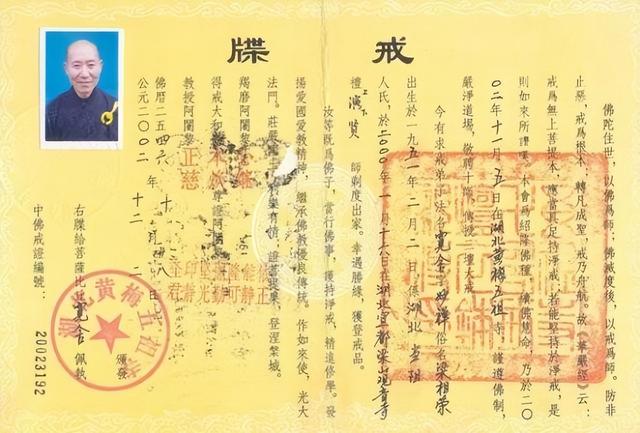 戒牒
佛陀住世，以佛爲師；佛滅度後，以戒爲師。防非
止惡，戒爲根本；轉凡成聖，戒乃舟航。故《華嚴經》云：
戒爲無上菩提本，應當具足持淨戒，若能堅持於淨戒，是
則如來所讚嘆。本會爲紹隆佛種，續佛慧命，乃於二〇
〇二年十一月五日在湖北黄梅五祖寺，謹遵佛制，
嚴淨道場，敬聘十師，傳授三壇大戒。
今有求戒弟子法名寬舍字 祥俗名梁相榮
出生於一九五一年二月二日係湖北當陽
人氏，於二000年一月十六日在湖北宜都梁山觀音寺
禮上演下賢師剃度出家。幸遇勝緣，獲登戒品。
汝等既爲佛子，當行佛事，護持淨戒，精進修學。發
揚愛國愛教精神，繼承佛教優良傳統。作如來使，光大
法門。莊嚴國土，利樂有情，證菩提果，登涅槃城。
得戒大和尚本焕尊證阿闍黎
羯磨阿闍黎
教授阿闍黎正慈
佛曆二五四六年十 月廿八日
公元二〇〇二年十二 月 二日
右牒給菩薩比丘寬舍佩執
頒發
湖北黄梅五祖寺
中佛戒證編號：
20023192